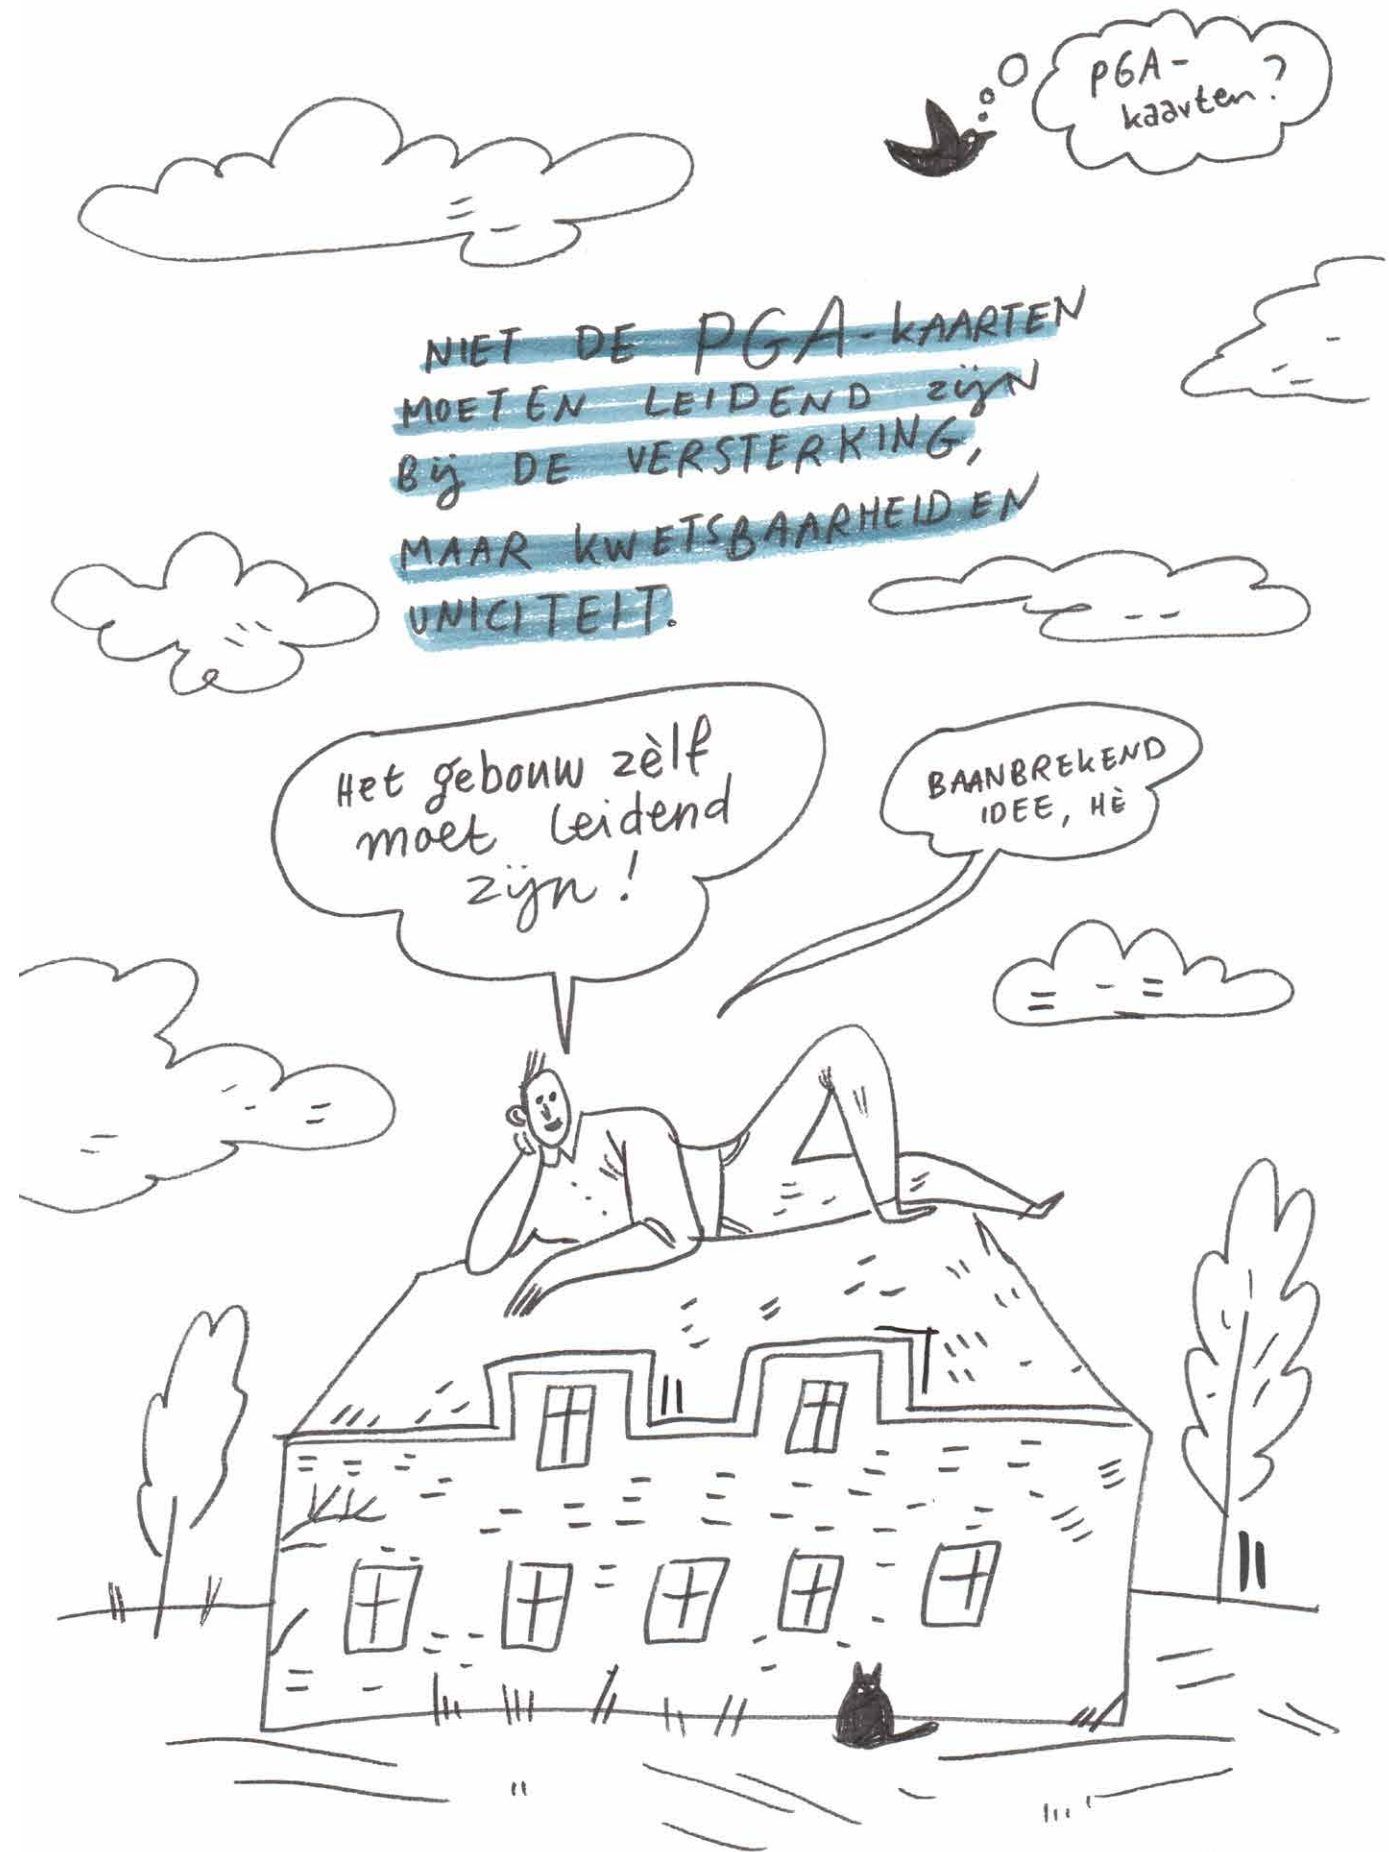 PGA-
kaarten?
NIET DE PGA-KAARTEN
MOETEN LEIDEND zijn
Bij DE VERSTERKING,
MAAR KWETSBAARHEID EN
UNICITEIT.
Het gebouw zèlf
moet leidend
zijn!
BAANBREKEND
IDEE, HÈ